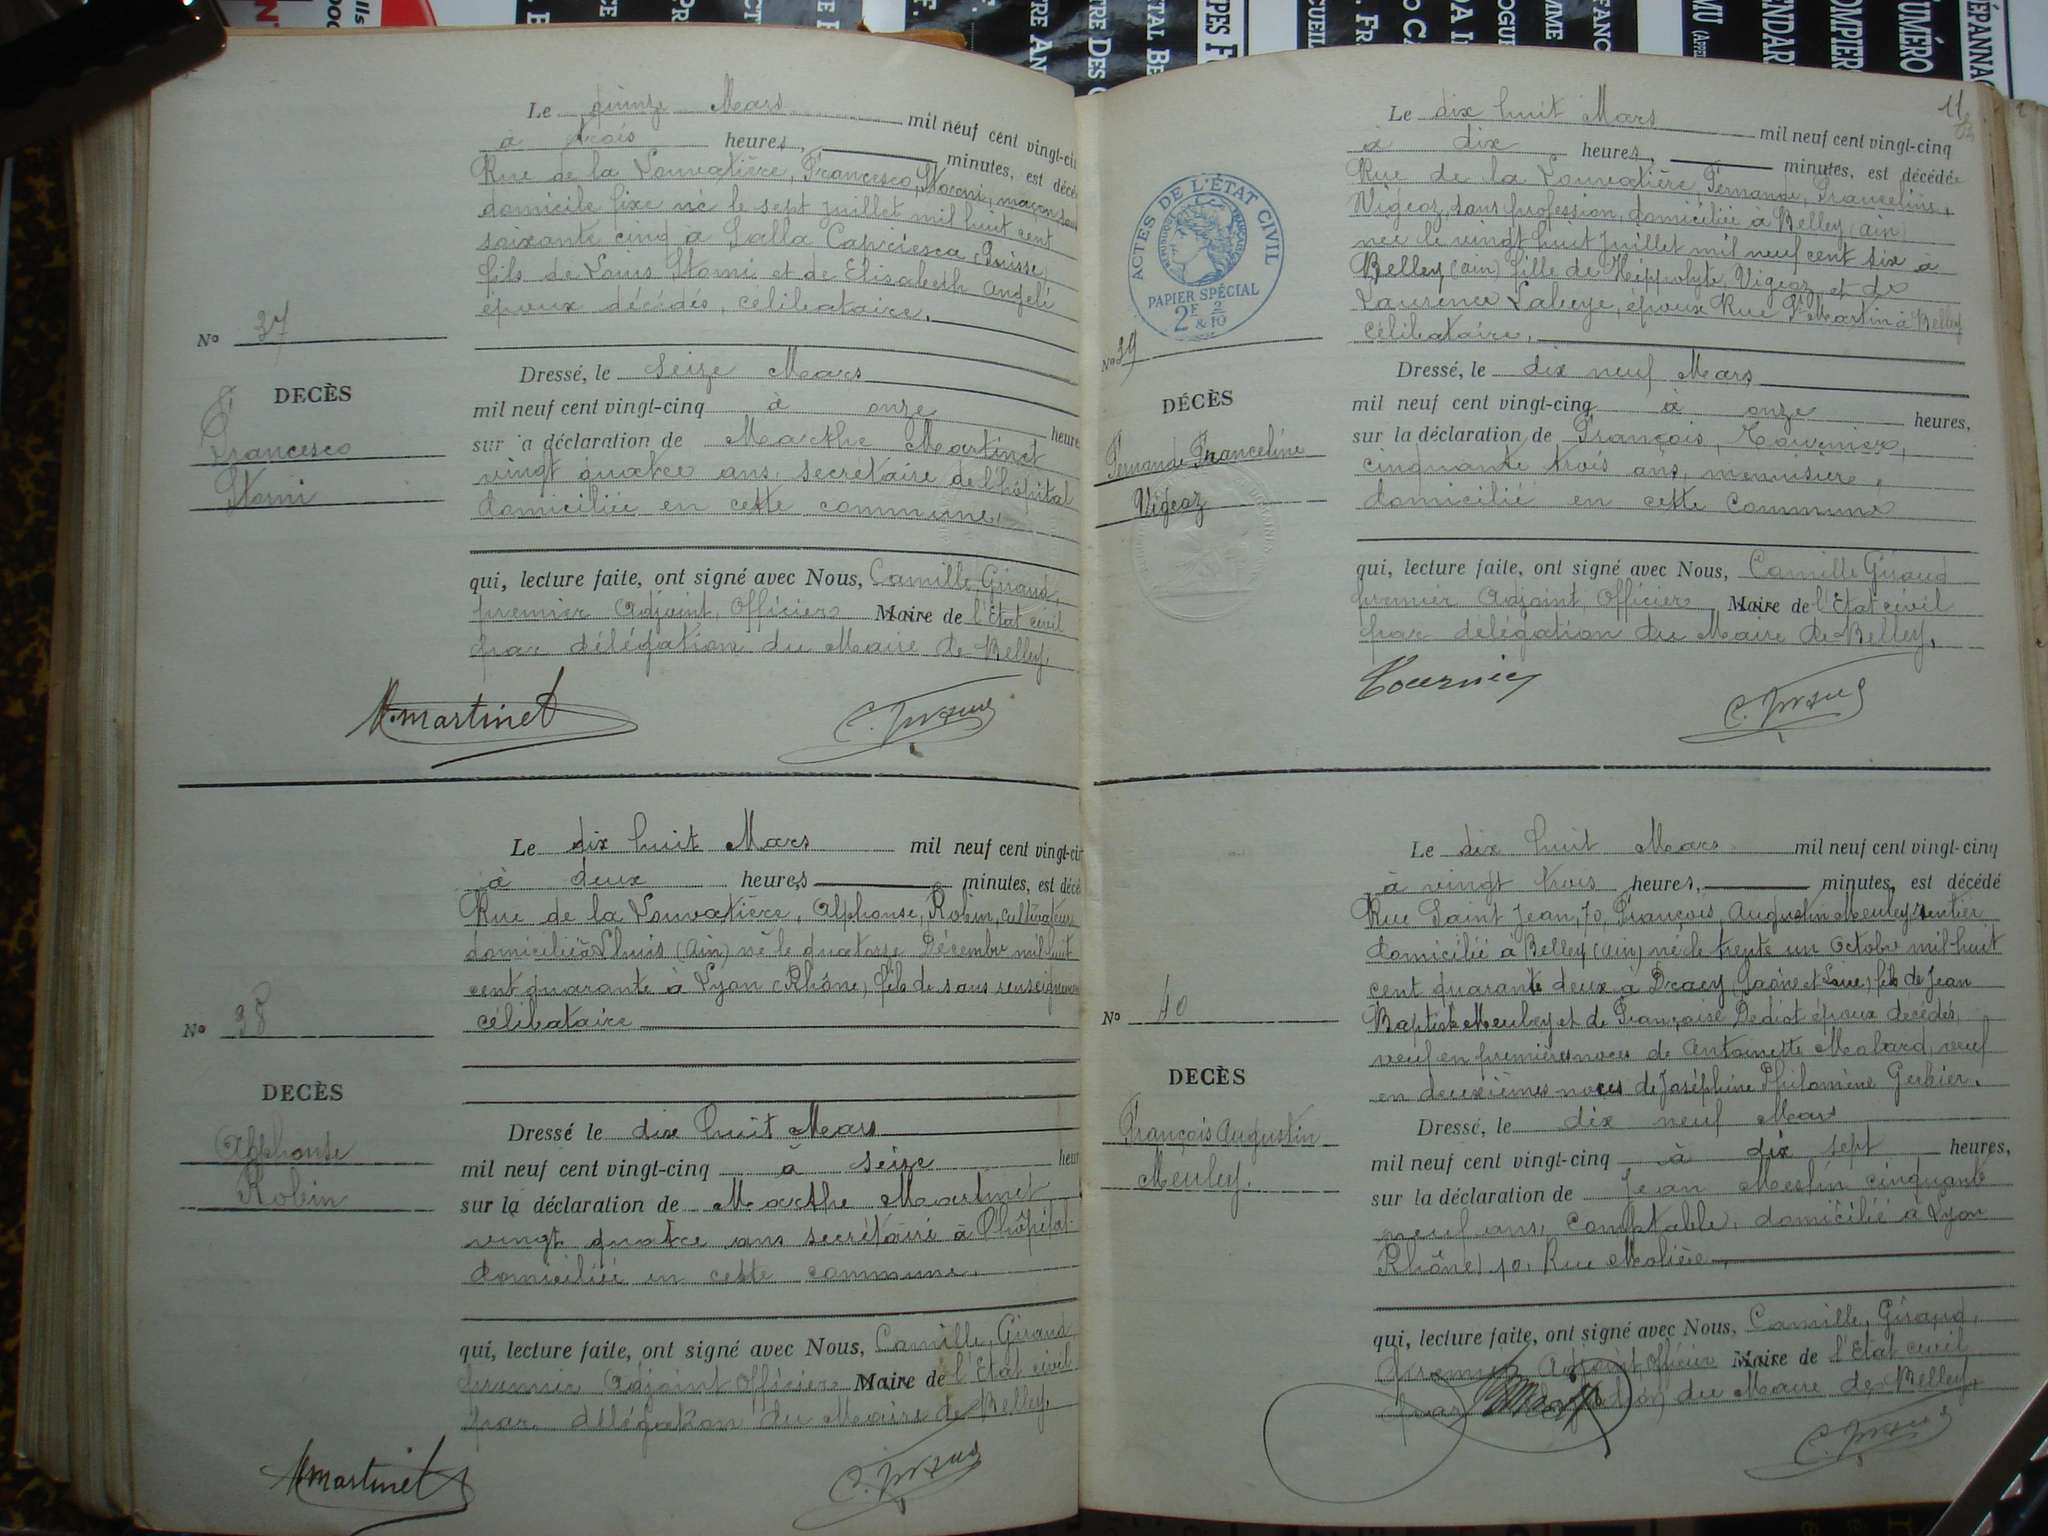 Le quinze Mars mil neuf cent vingt-ci
à trois heures, minutes, est décé
Rue de la Louvatière, Francesco, Storni, maçon sans
domicile fixe né le sept juillet mil huit cent
soixante cinq à Salla Capriesca (Suisse)
fils de Louis Storni et de Elisabeth Angeli
époux décédés, célibataire.
No 37
DECÈS
Francesco
Storni
Dressé, le seize Mars
mil neuf cent vingt-cinq à onze heure
sur a déclaration de Marthe Martinet
vingt quatre ans, secrétaire de l'hôpital
domiciliée en cette commune,
qui, lecture faite, ont signé avec Nous, Camille, Giraud,
premier Adjoint, Officier Maire de l'Etat civil
par délégation du Maire de Belley.
M. martinet
C. Giraud
Le dix huit Mars mil neuf cent vingt-cin
à deux heures minutes, est décé
Rue de la Louvatière, Alphonse, Robin, cultivateur
domicilié à Lhuis (Ain) né le quatorze Décembre mil huit
cent quarante à Lyon (Rhône) fils de sans renseignements
célibataire
No 38
DECÈS
Alphonse
Robin
Dressé le dix huit Mars
mil neuf cent vingt-cinq à seize heur
sur la déclaration de Marthe Martinet
vingt quatre ans secrétaire à l'hôpital
domiciliée en cette commune.
qui, lecture faite, ont signé avec Nous, Camille, Giraud
premier Adjoint Officier Maire de l'Etat civil
par délégation du Maire de Belley.
M martinet
C. Giraud
11
Le dix huit Mars mil neuf cent vingt-cinq
à dix heures, minutes, est décédée
Rue de la Louvatière Fernande, Franceline,
Vigeoz, sans profession, domiciliée à Belley (ain)
née le vingt huit juillet mil neuf cent six à
Belley (ain) fille de Hippolyte, Vigeoz et de
Laurence Labeye, époux Rue St Martin à Belley
célibataire.
ACTES DE L'ÉTAT CIVIL
RÉPUBLIQUE FRANÇAISE
PAPIER SPÉCIAL
2F & 2/10
No 39
DÉCÈS
Fernande Franceline
Vigeoz
Dressé, le dix neuf Mars
mil neuf cent vingt-cinq à onze heures,
sur la déclaration de François, Tournier,
cinquante trois ans, menuisier,
domicilié en cette Commune
qui, lecture faite, ont signé avec Nous, Camille Giraud
premier Adjoint, Officier, Maire de l'Etat civil
par délégation du Maire de Belley.
Tournier
C. Giraud
Le dix huit Mars mil neuf cent vingt-cinq
à vingt trois heures, minutes, est décédé
Rue Saint Jean, 70, François, Augustin Meuley rentier
domicilié à Belley (ain) né le trente un Octobre mil huit
cent quarante deux à Dracy (Saône et Loire) fils de Jean
Baptiste Meuley et de Françoise Dediot époux décédés,
veuf en premières noces de Antoinette Malard, veuf
en deuxièmes noces de Joséphine Philomène Gerbier.
No 40
DECÈS
François Augustin
Meuley.
Dressé, le dix neuf Mars
mil neuf cent vingt-cinq à dix sept heures,
sur la déclaration de Jean Meslin cinquante
neuf ans, comptable, domicilié à Lyon
Rhône) 10, Rue Molière,
qui, lecture faite, ont signé avec Nous, Camille, Giraud,
premier Adjoint Officier Maire de l'Etat civil
par délégation du Maire de Belley.
C. Giraud